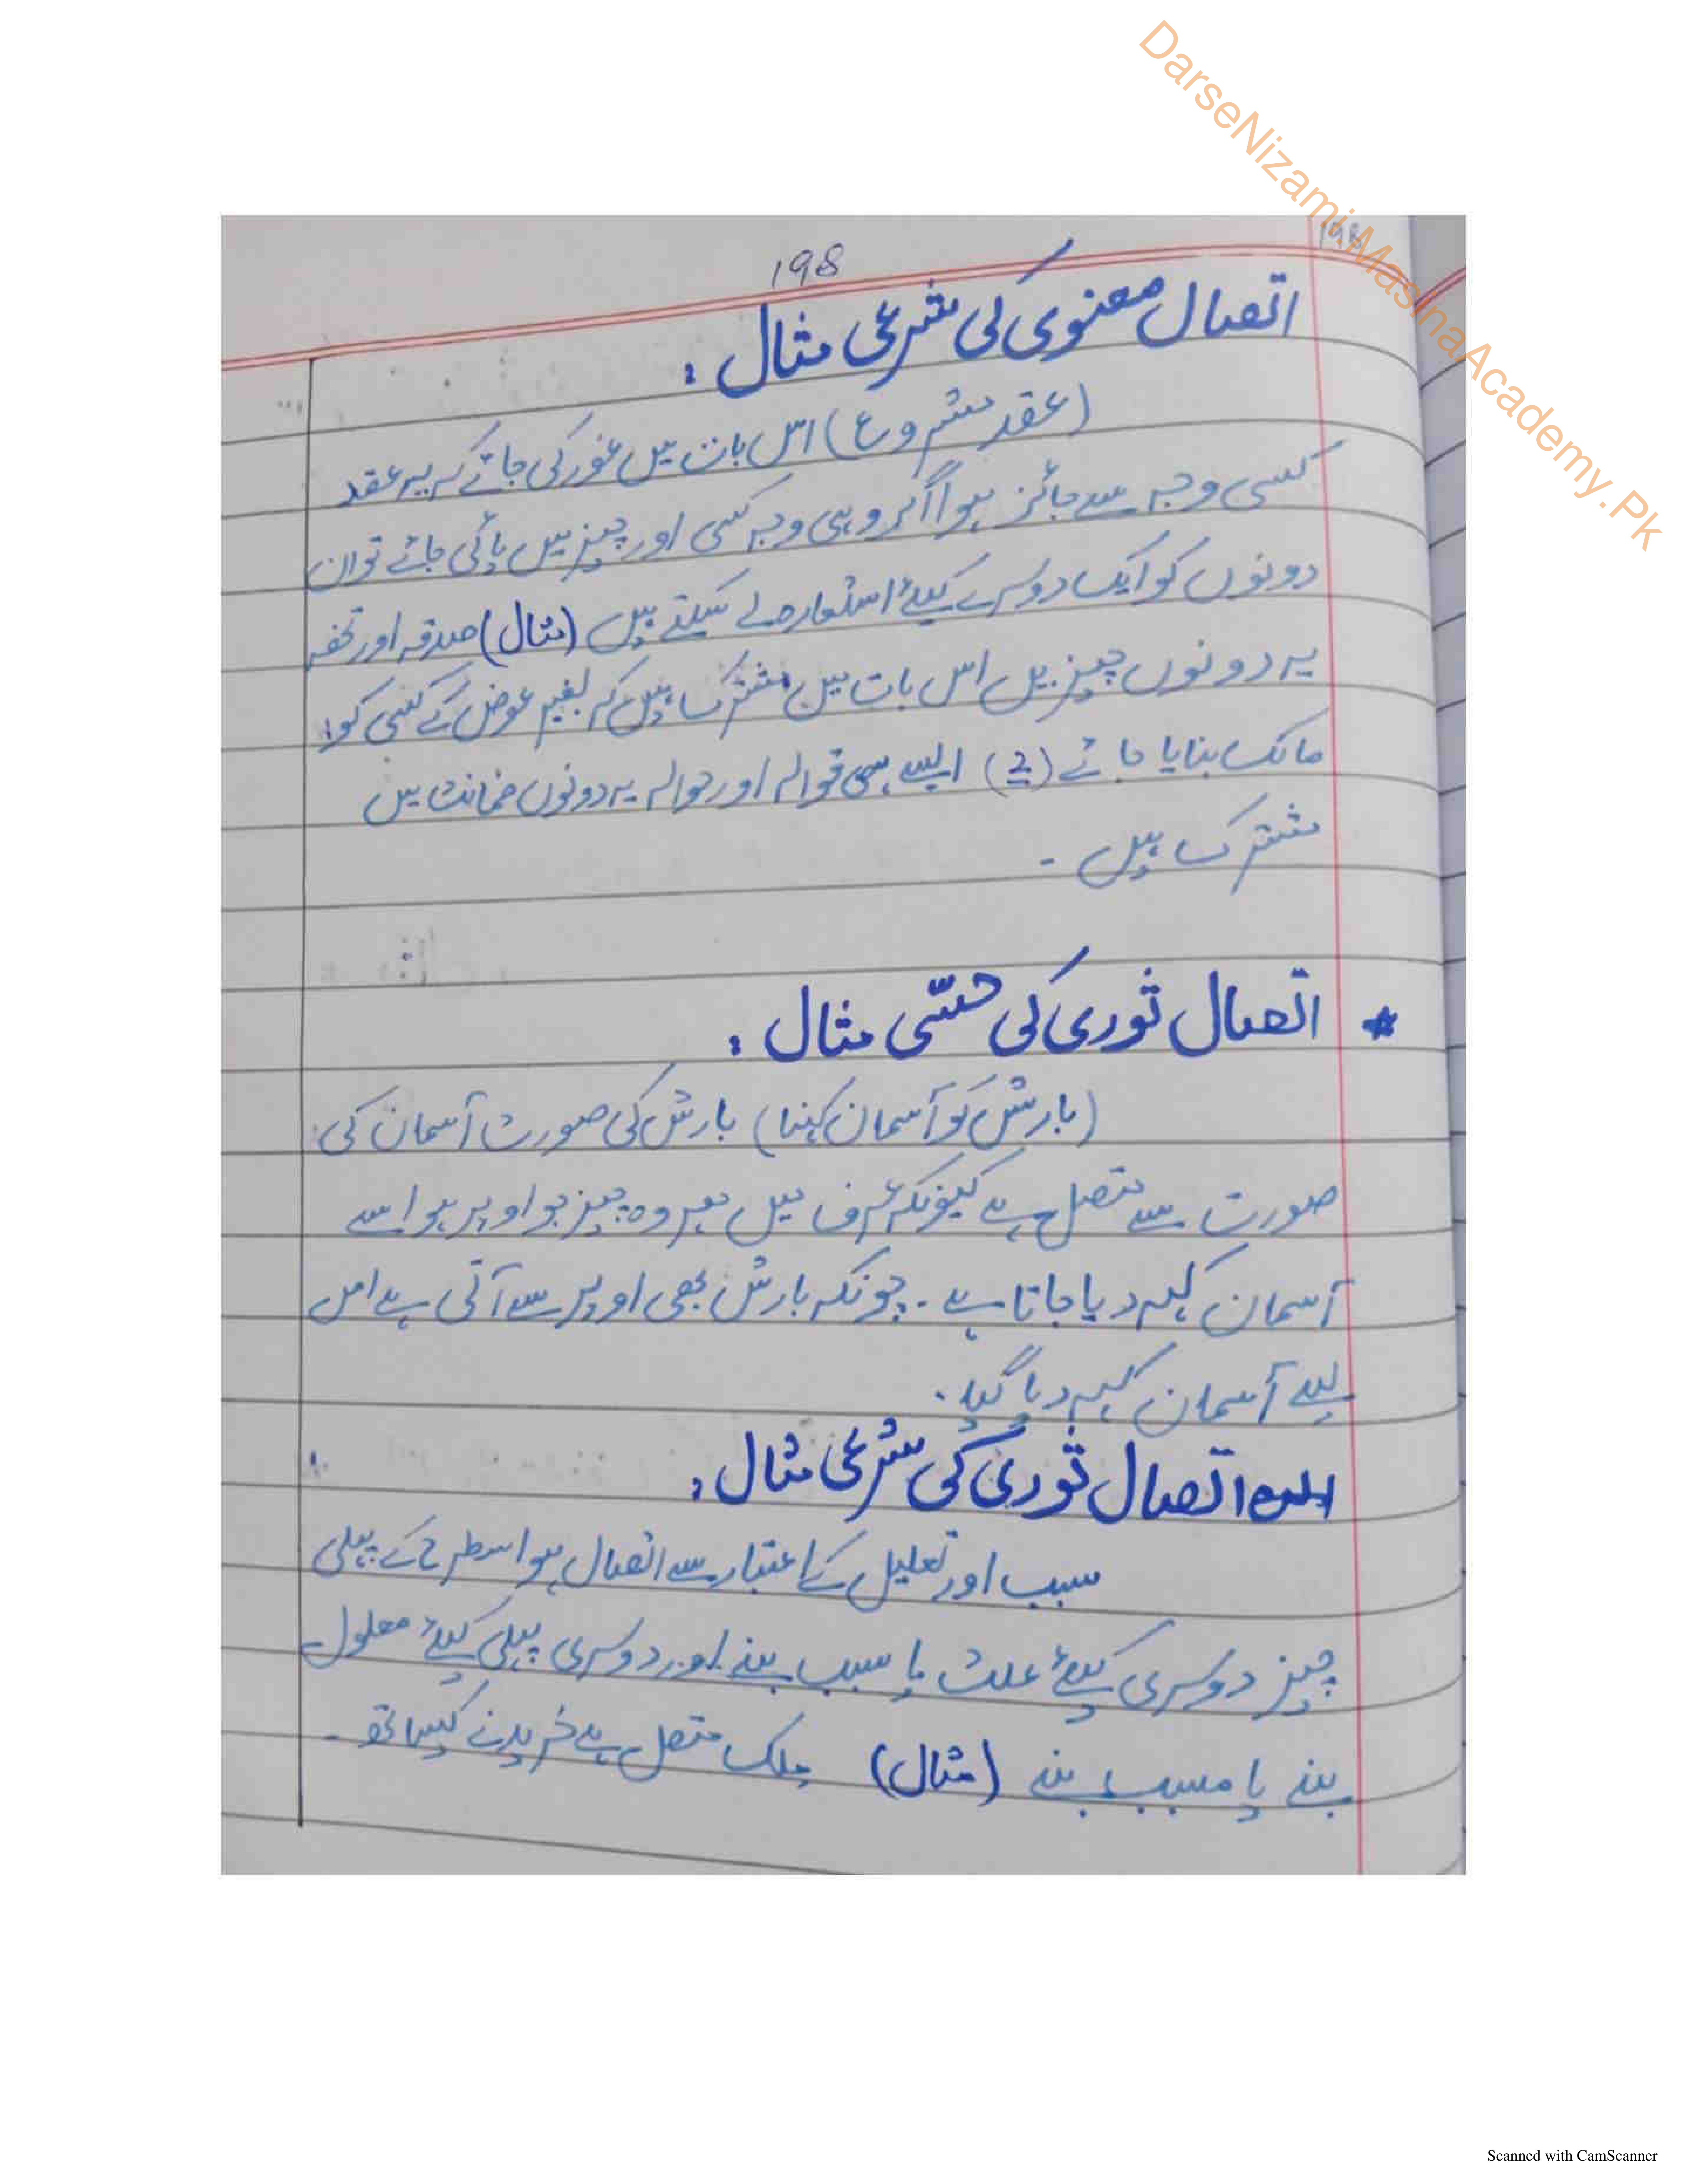 DarseNizamiMasnaAcademy.Pk
198
198
اتصال معنوی کی شرعی مثال :
(عقد مشروع) اس بات میں غور کی جائے کہ یہ عقد
کسی وجہ سے جائز ہوا اگر وہی وجہ کسی اور چیز میں پائی جائے تو ان
دونوں کو ایک دوسرے کیلئے استعارہ لے سکتے ہیں (مثال) صدقہ اور تحفہ
یہ دونوں چیزیں اس بات میں مشترک ہیں کہ بغیر عوض کے کسی کو
مالک بنایا جائے (2) ایسے ہی قوالہ اور حوالہ یہ دونوں ضمانت میں
مشترک ہیں ۔
* اتصال ثوری کی حسّی مثال :
(بارش کو آسمان کہنا) بارش کی صورت آسمان کی
صورت سے متصل ہے کیونکہ عرف میں ہر وہ چیز جو اوپر ہو اسے
آسمان کہہ دیا جاتا ہے ۔ چونکہ بارش بھی اوپر سے آتی ہے اس
لیے آسمان کہہ دیا گیا ۔
اتصال ثوری کی شرعی مثال :
سبب اور تعلیل کے اعتبار سے اتصال ہو اسطرح کے پہلی
چیز دوسری کیلئے علت یا سبب بنے اور دوسری پہلی کیلئے معلول
بنے یا مسبب بنے (مثال) ملک متصل ہے خریدنے کیساتھ ۔
Scanned with CamScanner